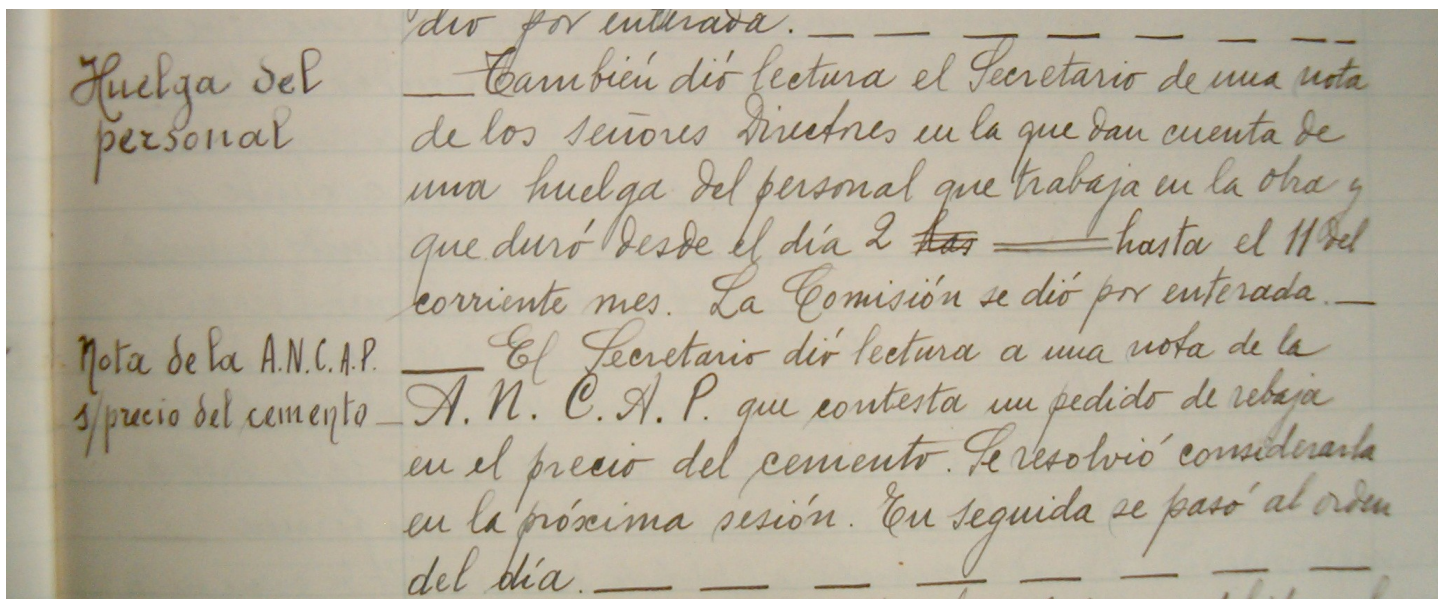 dió por enterada. — — — — — — — —
Huelga del
personal
— También dió lectura el Secretario de una nota
de los señores Directores en la que dan cuenta de
una huelga del personal que trabaja en la obra y
que duró desde el día 2 has == hasta el 11 del
corriente mes. La Comisión se dió por enterada. —
Nota de la A.N.C.A.P.
s/precio del cemento —
— El Secretario dió lectura a una nota de la
A. N. C. A. P. que contesta un pedido de rebaja
en el precio del cemento. Se resolvió considerarla
en la próxima sesión. En seguida se pasó al orden
del día. — — — — — — — —